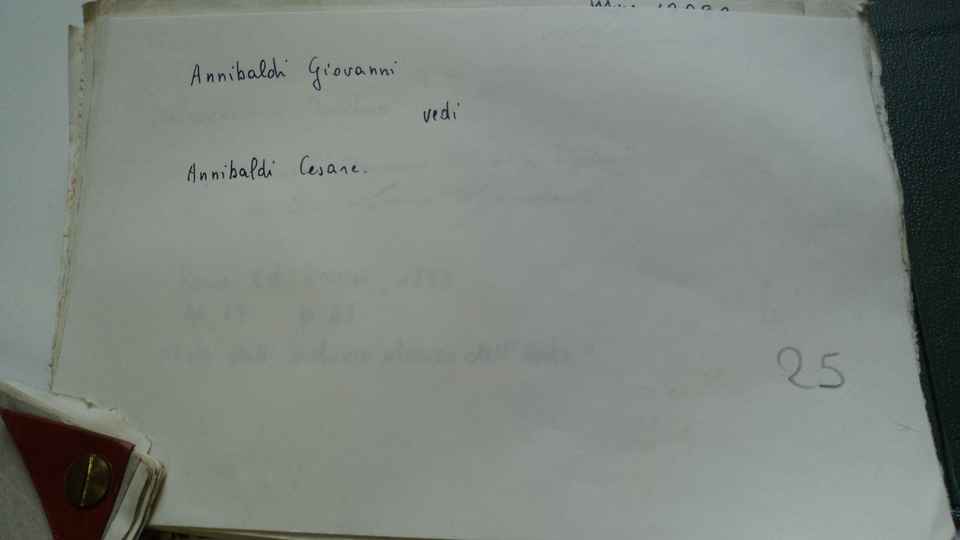 Annibaldi Giovanni
vedi
Annibaldi Cesare.
25